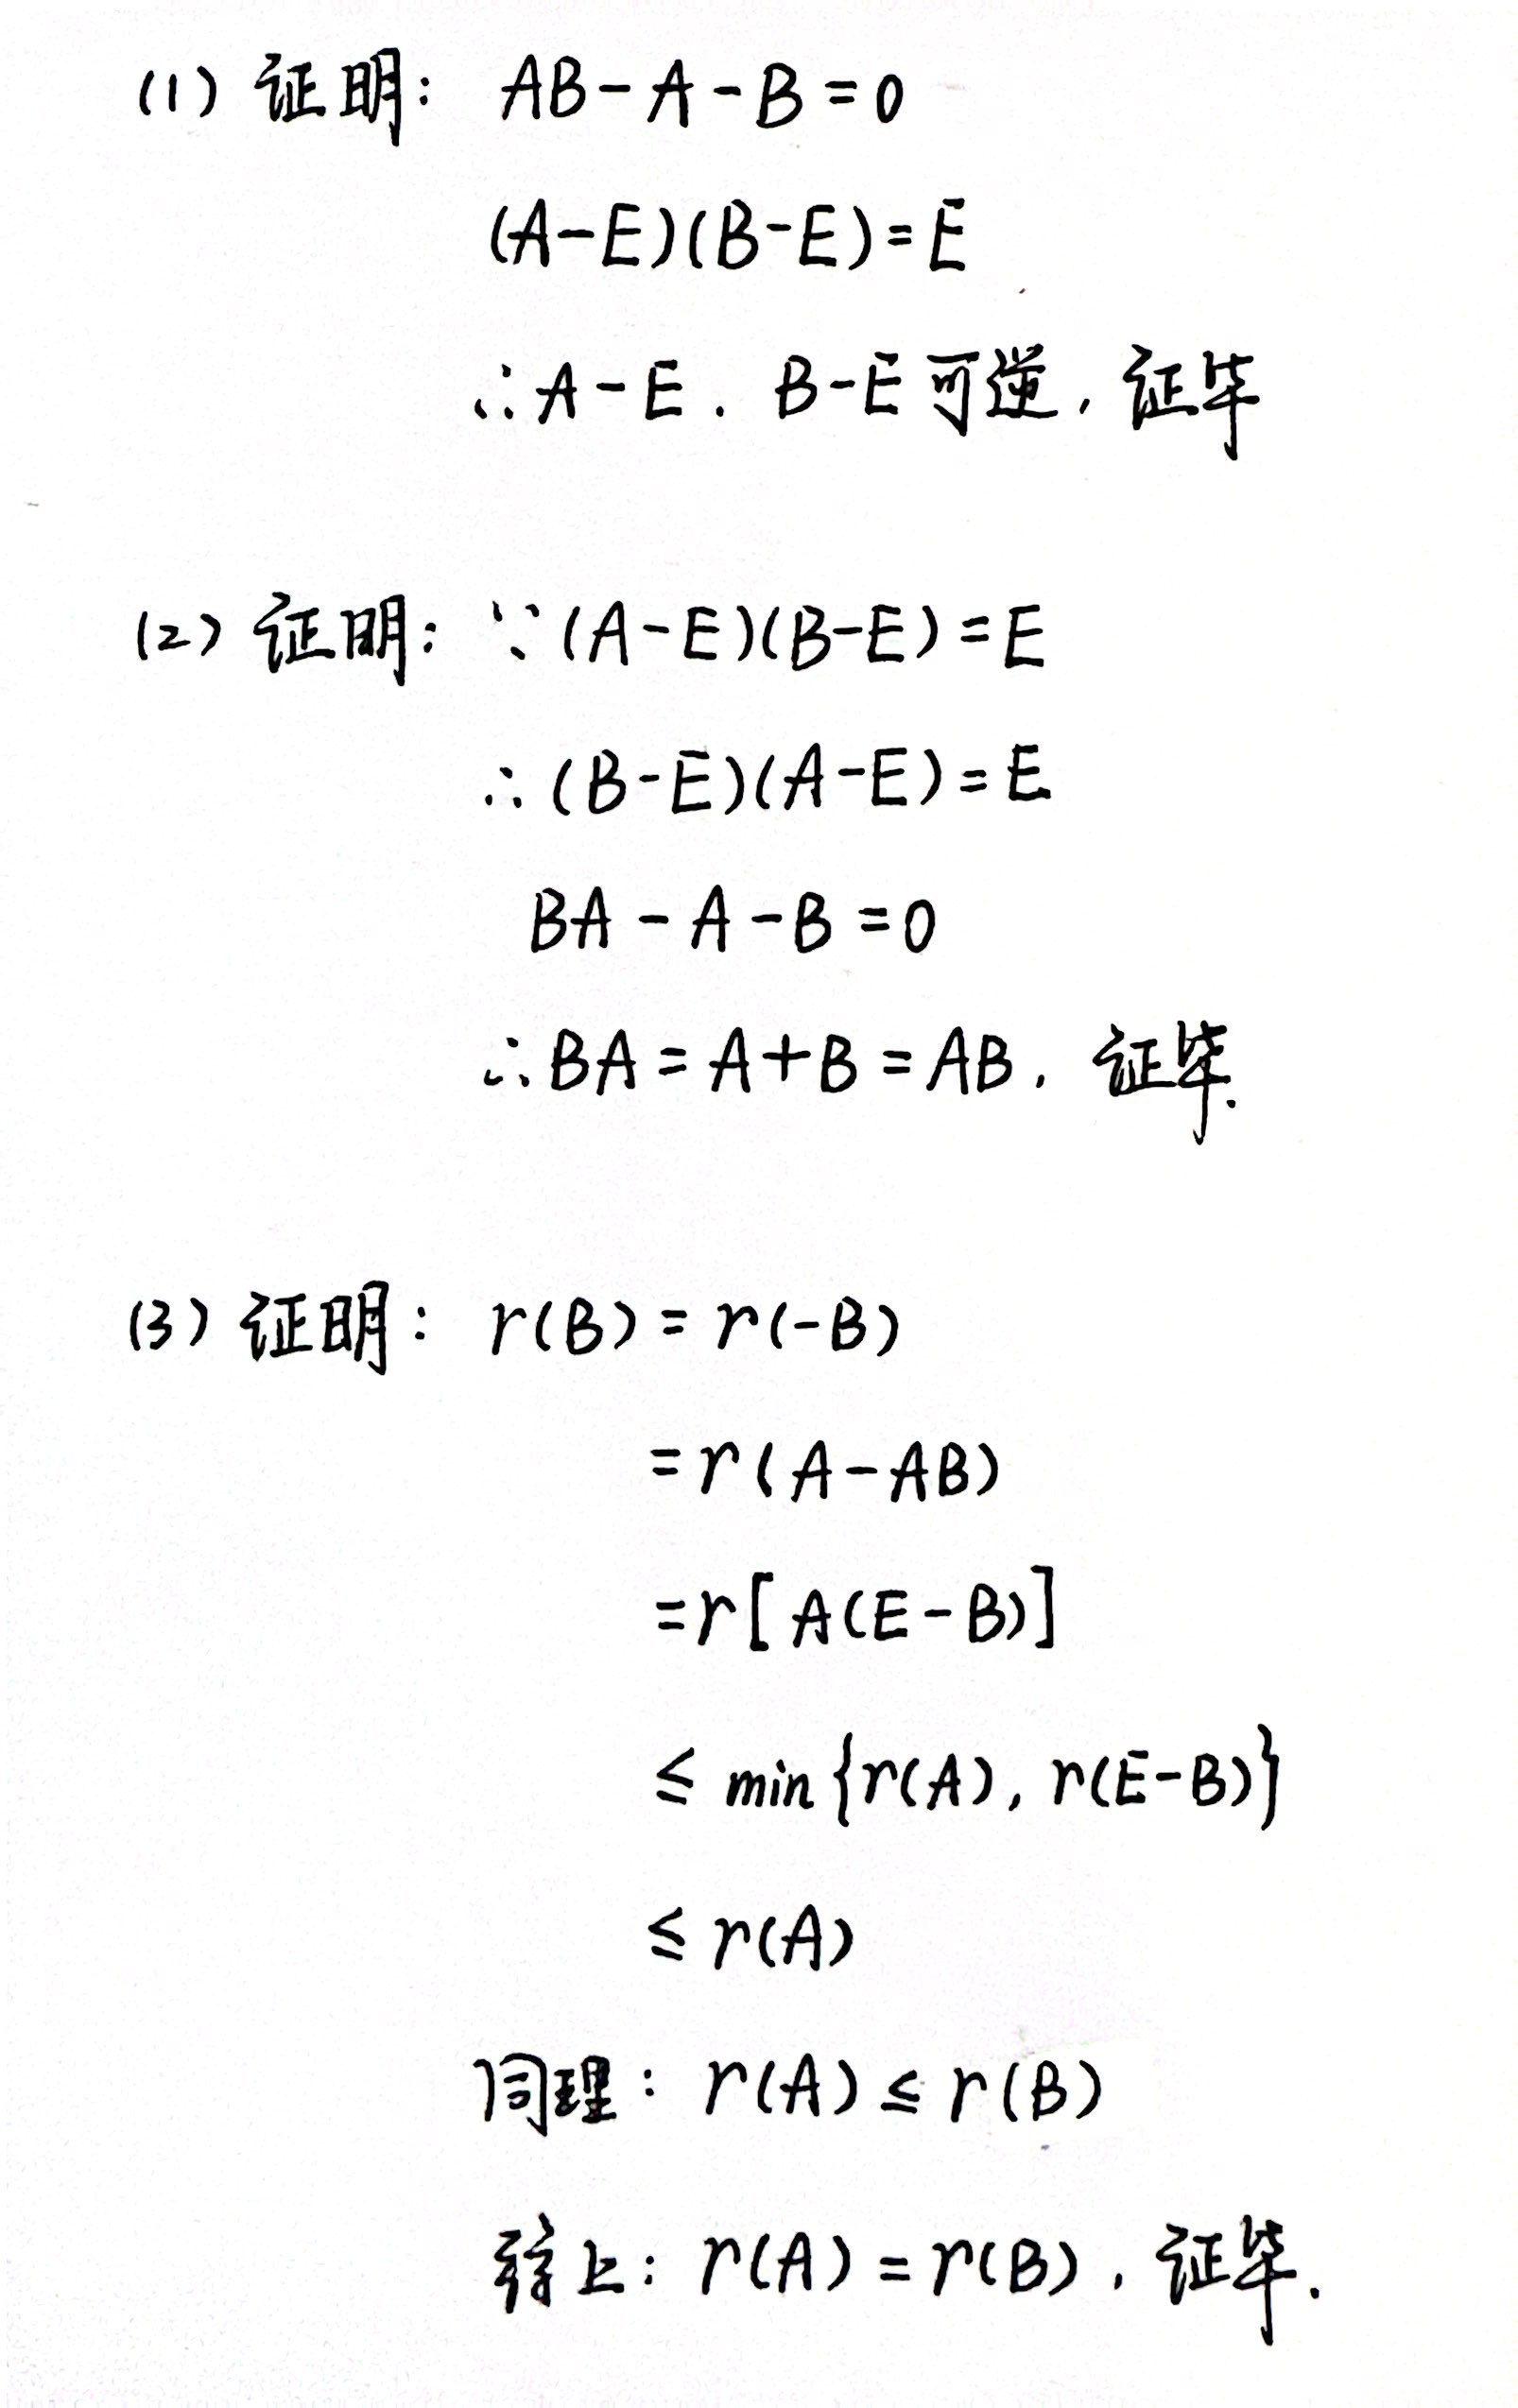 (1) 证明: AB-A-B=0
(A-E)(B-E)=E
∴A-E. B-E可逆, 证毕
(2) 证明: ∵(A-E)(B-E)=E
∴(B-E)(A-E)=E
BA-A-B=0
∴BA=A+B=AB, 证毕.
(3) 证明: r(B)=r(-B)
=r(A-AB)
=r[A(E-B)]
≤ min{r(A), r(E-B)}
≤ r(A)
同理: r(A)≤r(B)
综上: r(A)=r(B), 证毕.